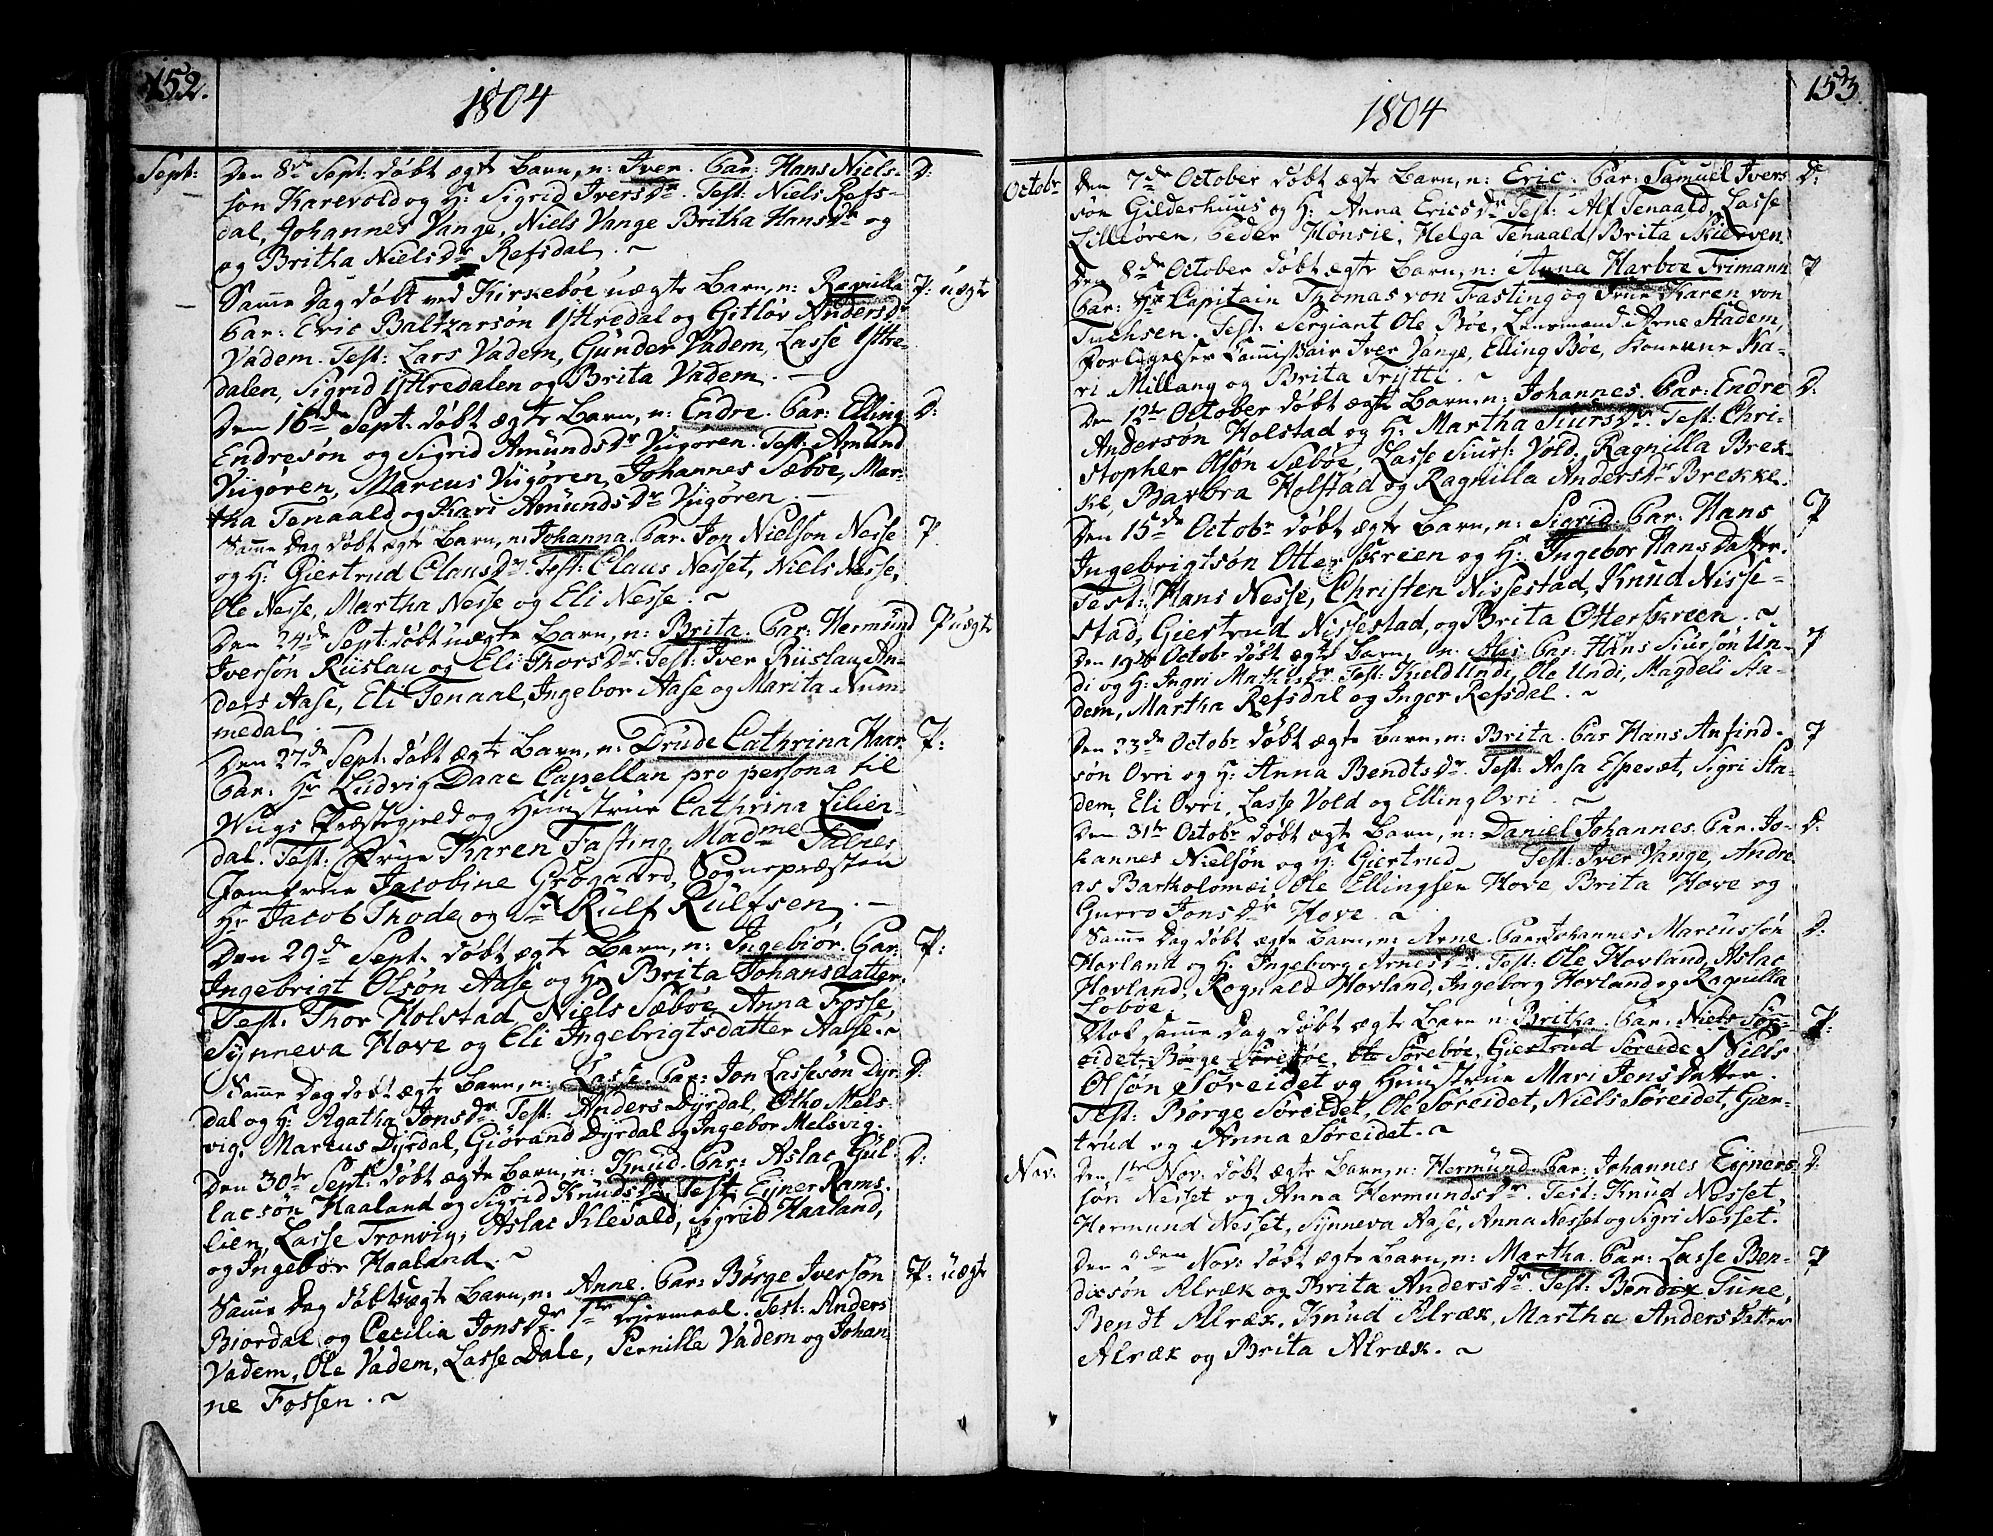 152.
1804
Sept:
Den 8de Sept: døbt ægte Barn, n: Iver. Par: Hans Niels- D:
søn Karevold og H: Sigrid IversDr. Test: Niels Refs-
dal, Johannes Vange, Niels Vange Britha HansDr og
og Britha NielsDr Refsdal. ~
Samme Dag døbt ved Kirkebøe uægte Barn, n: Ragnilla P: uægte
Par: Eric Baltzarsøn Ystredal og Gitløv AndersDr
Vadem. Test: Lars Vadem, Gunder Vadem, Lasse Ystre-
dalen, Sigrid Ystredalen og Brita Vadem. —
Den 16de Sept: døbt ægte Barn, n: Endre. Par: Elling D:
Endresøn og Sigrid AmundsDr Viigøren. Test: Amund
Viigøren, Marcus Viigøren, Johannes Sæbøe, Mar-
tha Tenaald og Kari AmundsDr Viigøren. —
Samme Dag døbt ægte Barn, n: Johanna. Par. Jon Nielsøn Nesse P.
og H: Giertrud ClausDr. Test: Claus Nesset, Niels Nesse,
Ole Nesse, Martha Nesse og Eli Nesse. ~
Den 24de Sept: døbt uægte Barn, n: Brita. Par: Hermund P uægte
Iversøn Riislau og Eli ThorsDr. Test: Iver Riislau, An-
ders Aase, Eli Tenaal, Ingebor Aase og Marita Num-
medal. —
Den 27de Sept: døbt ægte Barn, n: Drude Cathrina Haar P:
Par: Hr Ludvig Daae Capellan pro persona til
Wiigs Præstegield og Hustrue Cathrina Lilien-
dal. Test: Frue Karen Fasting, Madme
Jomfrue Jacobine Grøgaard, Sognepræsten
Hr Jacob Thode og Sr Rulf Rulfsen. —
Den 29de Sept: døbt ægte Barn, n: Ingebiør. Par: P:
Ingebrigt Olsøn Aase og H: Brita Johansdatter.
Test. Thor Holstad, Niels Sæbøe, Anna Fosse,
Synneva Hove og Eli Ingebrigtsdatter Aase. ~
Samme Dag døbt ægte Barn, n: Lasse. Par: Jon Lassesøn Dyr- D:
dal og H: Agatha JonsDr Test: Anders Dyrdal, Otho Mels-
vig, Marcus Dyrdal, Giørand Dyrdal og Ingebor Melsvig.
Den 30te Sept: døbt ægte Barn, n: Knud. Par: Aslac Gul- D:
lacsøn Haaland og Sigrid KnudsDr Test: Ejner Rams-
lien, Lasse Tronvig, Aslac Klevald, Sigrid Haaland,
og Ingebør Haaland. ~
Samme Dag døbt uægte Barn, n: Anne. Par: Børge Iversøn P: uægte
Biordal og Cecilia JonsDr. 1ste Leiermaal. Test: Anders
Vadem, Ole Vadem, Lasse Dale, Pernille Vadem og Johan
ne Fossen. ~
153.
1804
Octobr
Den 7de October døbt ægte Barn, n: Eric. Par: Samuel Ivers D:
søn Gilderhuus og H: Anna EricsDr Test: Alf Tenaald, Lasse
Lilleøren, Peder Hønsie, Helga Tenaald, Brita Skierven.
Den 8de October døbt ægte Barn, n: Anna Harboe Frimann P
Par: Hr Capitain Thomas von Fasting og Frue Karen von
Tuchsen. Test: Sergiant Ole Bøe, Lensmand Arne Stadem,
Forligelses Commissair Iver Vange, Elling Bøe, Konerne Ka-
ri Millang og Brita Trytti. ~
Den 12te October døbt ægte Barn, n: Johannes. Par: Endre D:
Andersøn Holstad og H: Martha SiursDr. Test: Chri-
stopher Olsøn Sæbøe, Lasse Siurs: Vold, Ragnilla Brek-
ke, Barbra Holstad og Ragnilla AndersDr Brekke.
Den 15de Octobr døbt ægte Barn, n: Sigrid Par: Hans P
Ingebrigtsøn Otterskreen og H: Ingebor HansDatter.
Test: Hans Nesse, Christen Nissestad, Knud Nisse-
stad, Giertrud Nissestad, og Brita Otterskreen. ~
Den 19de Octobr døbt ægte Barn, n: Par: Hans Siursøn Un- P
di og H: Ingri Test: Kield Undi, Ole Undi, Magdeli Sta-
dem, Martha Refsdal og Inger Refsdal. ~
Den 23de Octobr døbt ægte Barn, n: Brita. Par Hans Anfind- P
søn Ovri og H: Anna BendtsDr. Test: Aasa Espeset, Sigri Sta-
dem, Eli Ovri, Lasse Vold og Elling Ovri. ~
Den 31te Octobr døbt ægte Barn, n: Daniel Johannes. Par. Jo- D:
hannes Nielsøn og H: Giertrud Test: Iver Vange, Andre
as Bartholomæi, Ole Ellingsen Hove, Brita Hove og
Gurro JonsDr Hove. ~
Samme Dag døbt ægte Barn, n: Arne. Par: Johannes Marcussøn D:
Hovland og H: Ingeborg ArnesDr. Test: Ole Hovland, Aslac
Hovland, Rognald Hovland, Ingeborg Hovland og Ragnilla
Lobøe.
Nok samme Dag døbt ægte Barn n: Britha. Par: Niels Sør- P:
eidet, Børge Sørebøe, Ole Sørebøe, Giertrud Søreide Niels
Olsøn Søreidet og Huustrue Mari JensDatter.
Test: Børge Søreidet, Ole Søreidet, Niels Søreidet, Giær-
trud og Anna Søreidet. ~
Nov:
Den 1ste Nov. døbt ægte Barn, n: Hermund. Par: Johannes Ejners D:
søn Nesset og Anna HermundsDr. Test: Knud Nesset,
Hermund Nesset, Synneva Aase, Anna Nesset og Sigri Nesset.
Den 2den Nov: døbt ægte Barn, n: Martha. Par: Lasse Ben- P
dixsøn Alræk og Brita AndersDr. Test: Bendix Tune,
Bendt Alræk, Knud Alræk, Martha Andersdatter
Alræk og Brita Alræk. ~